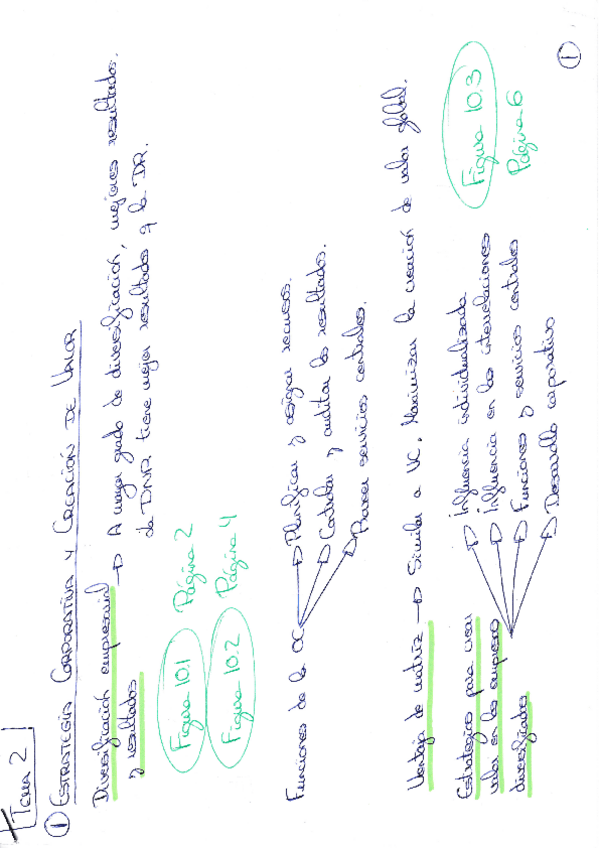 Tema 2
① ESTRATEGIA CORPORATIVA Y CREACIÓN DE VALOR
Diversificación empresarial → A mayor grado de diversificación, mejores resultados.
y resultados
la DNR tiene mejor resultados q la DR.
Figura 10.1 Página 2
Figura 10.2 Página 4
Funciones de la OC → Planificar y asignar recursos.
→ Controlar y auditar los resultados.
→ Proveer servicios centrales.
Ventaja de matriz → Similar a VC. Maximizar la creación de valor global.
Estrategias para crear
valor en las empresas
diversificadas
→ Influencia individualizada
→ Influencia en las interrelaciones
→ Funciones y servicios centrales
→ Desarrollo corporativo
Figura 10.3
Página 6
①